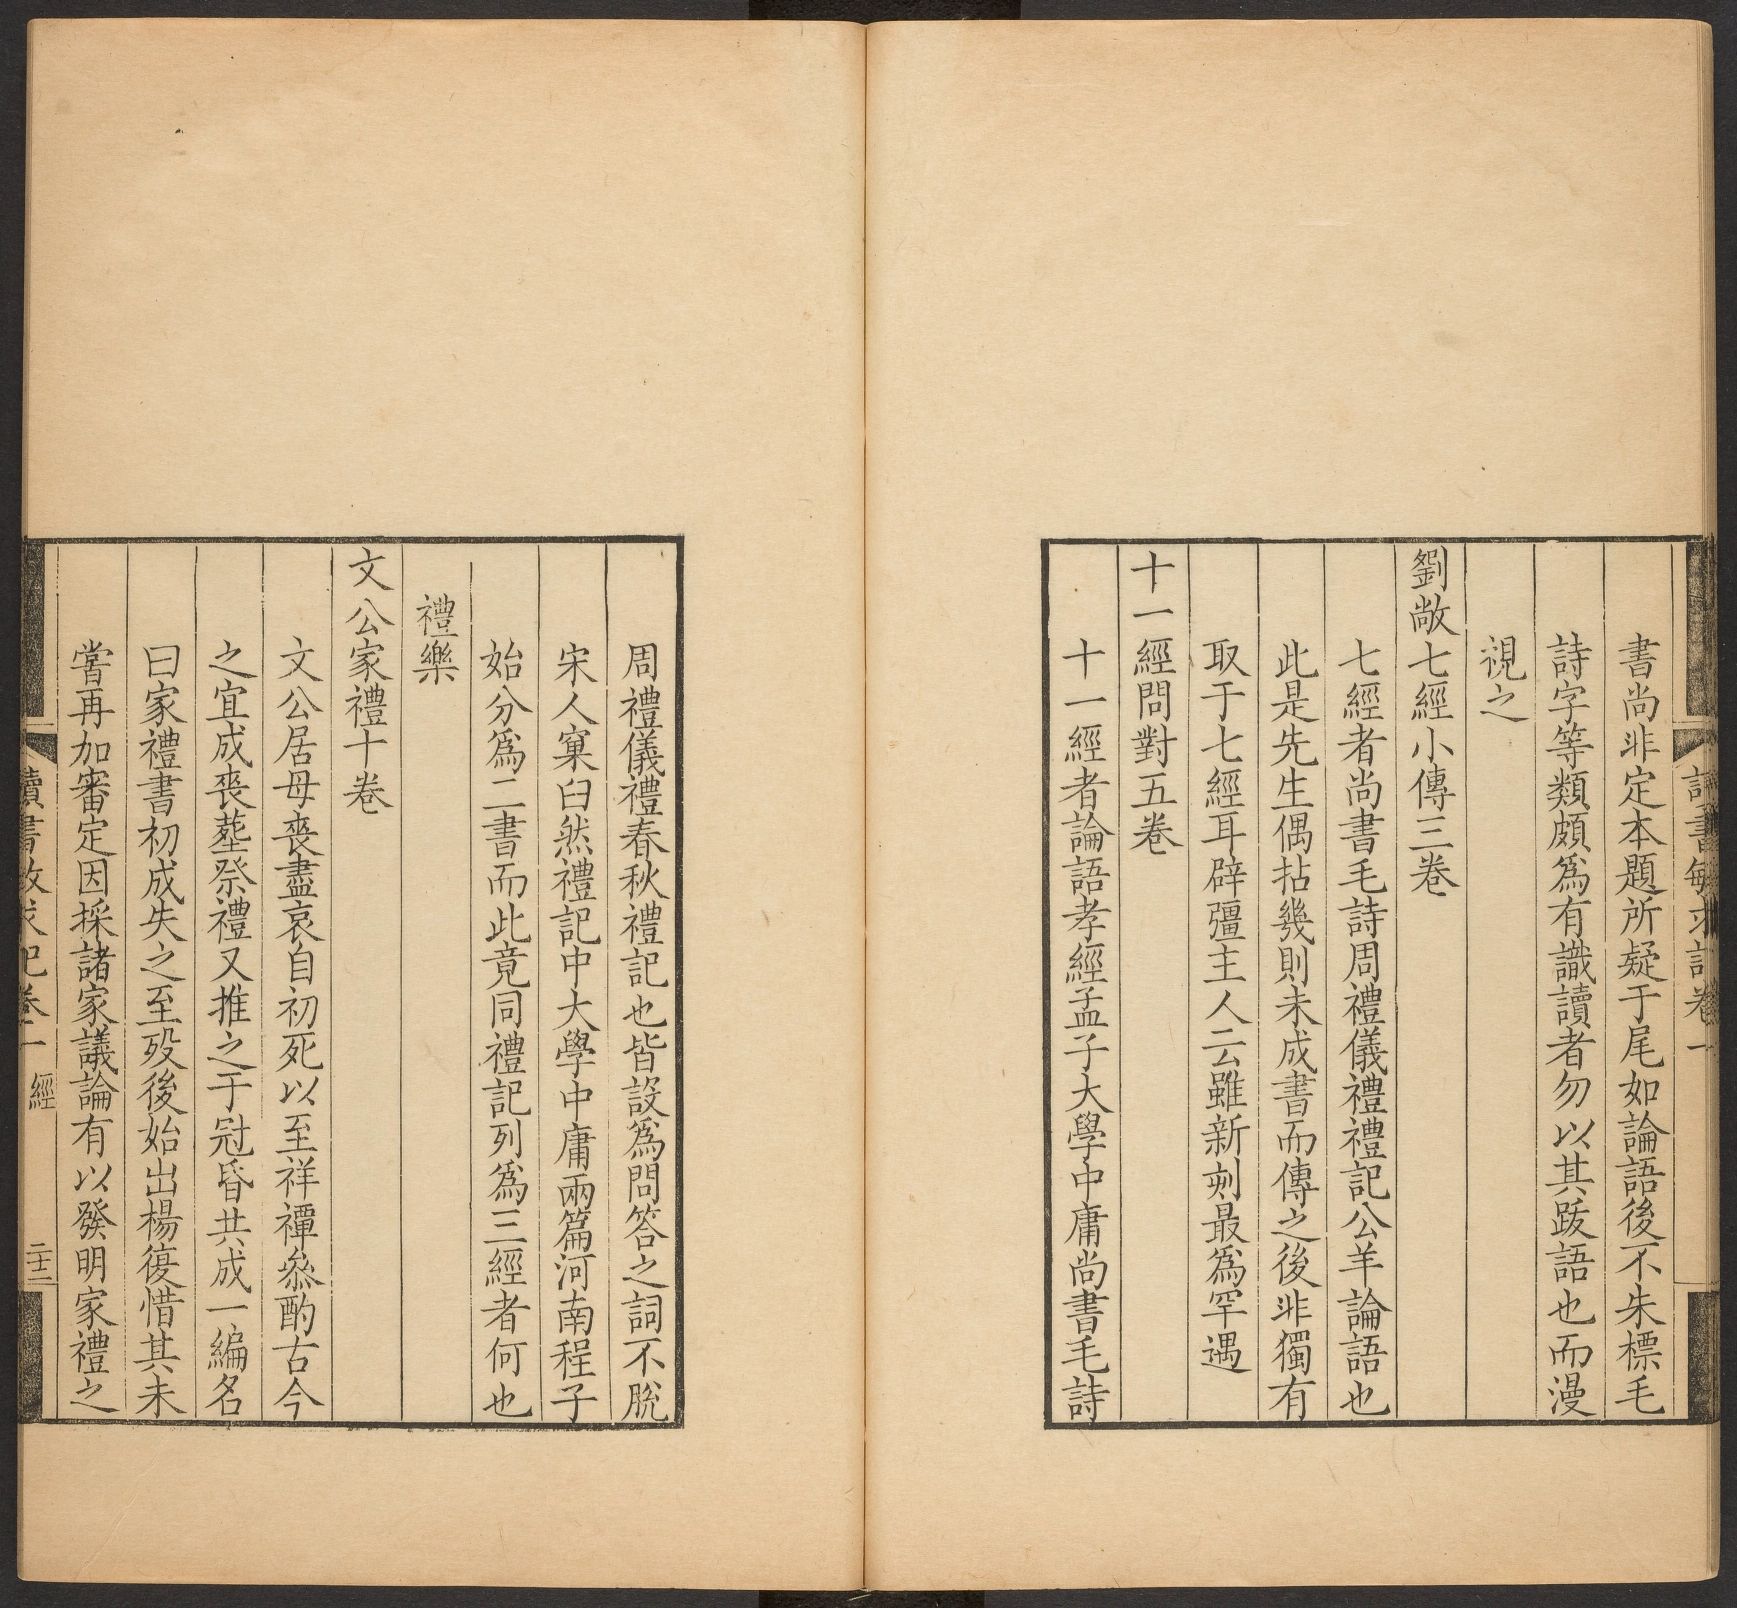 書尚非定本題所疑于尾如論語後不朱標毛
詩字等類頗爲有識讀者勿以其跋語也而漫
視之
劉敞七經小傳三卷
七經者尚書毛詩周禮儀禮禮記公羊論語也
此是先生偶拈幾則未成書而傳之後非獨有
取于七經耳辟彊主人云雖新刻最爲罕遇
十一經問對五卷
十一經者論語孝經孟子大學中庸尚書毛詩
周禮儀禮春秋禮記也皆設爲問答之詞不脫
宋人窠臼然禮記中大學中庸兩篇河南程子
始分爲二書而此竟同禮記列爲三經者何也
禮樂
文公家禮十卷
文公居母喪盡哀自初死以至祥禫叅酌古今
之宜成喪葬祭禮又推之于冠昏共成一編名
曰家禮書初成失之至歿後始出楊復惜其未
嘗再加審定因採諸家議論有以發明家禮之
讀書敏求記卷一 經 二十二